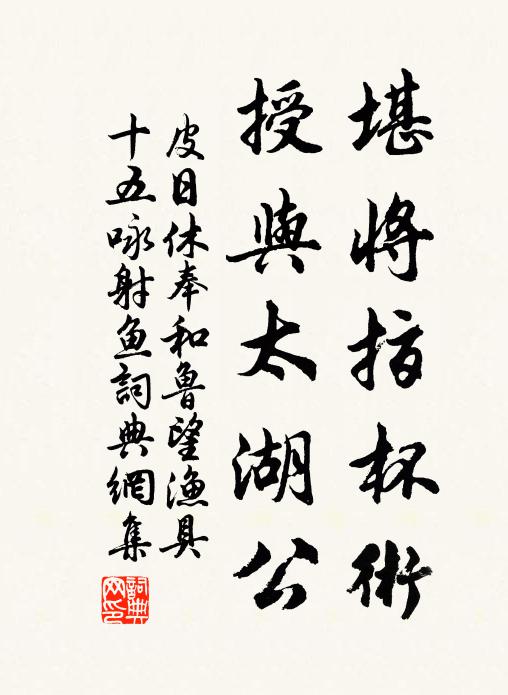 堪將指杯術
授與太湖公
皮日休奉和魯望漁具
十五咏射魚詞典網集
詞典网印